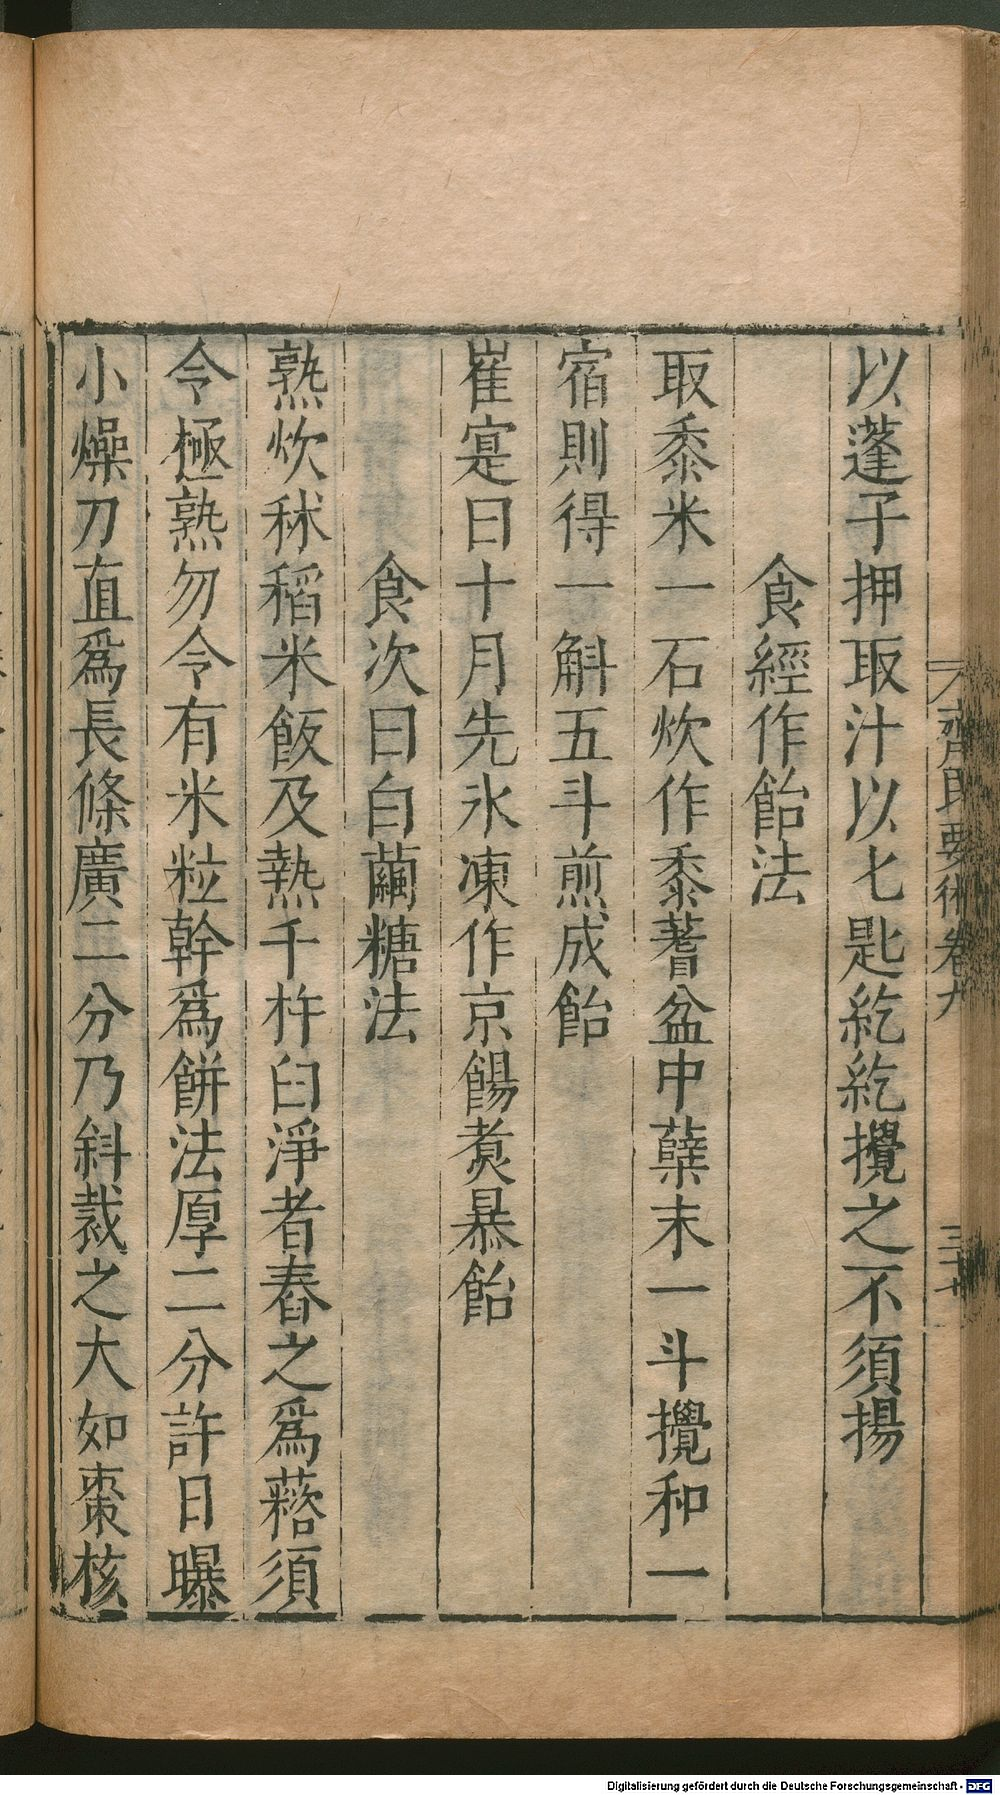 以蓬子押取汁以匕匙紇紇攪之不須揚
食經作飴法
取黍米一石炊作黍蓍盆中蘖末一斗攪和一
宿則得一斛五斗煎成飴
崔寔曰十月先氷凍作京餳煑暴飴
食次曰白繭糖法
熟炊秫稻米飯及熱千杵臼淨者舂之爲䕩須
令極熟勿令有米粒幹爲餅法厚二分許日曝
小燥刀直爲長條廣二分乃斜裁之大如棗核
齊民要術卷九
Digitalisierung gefördert durch die Deutsche Forschungsgemeinschaft - DFG